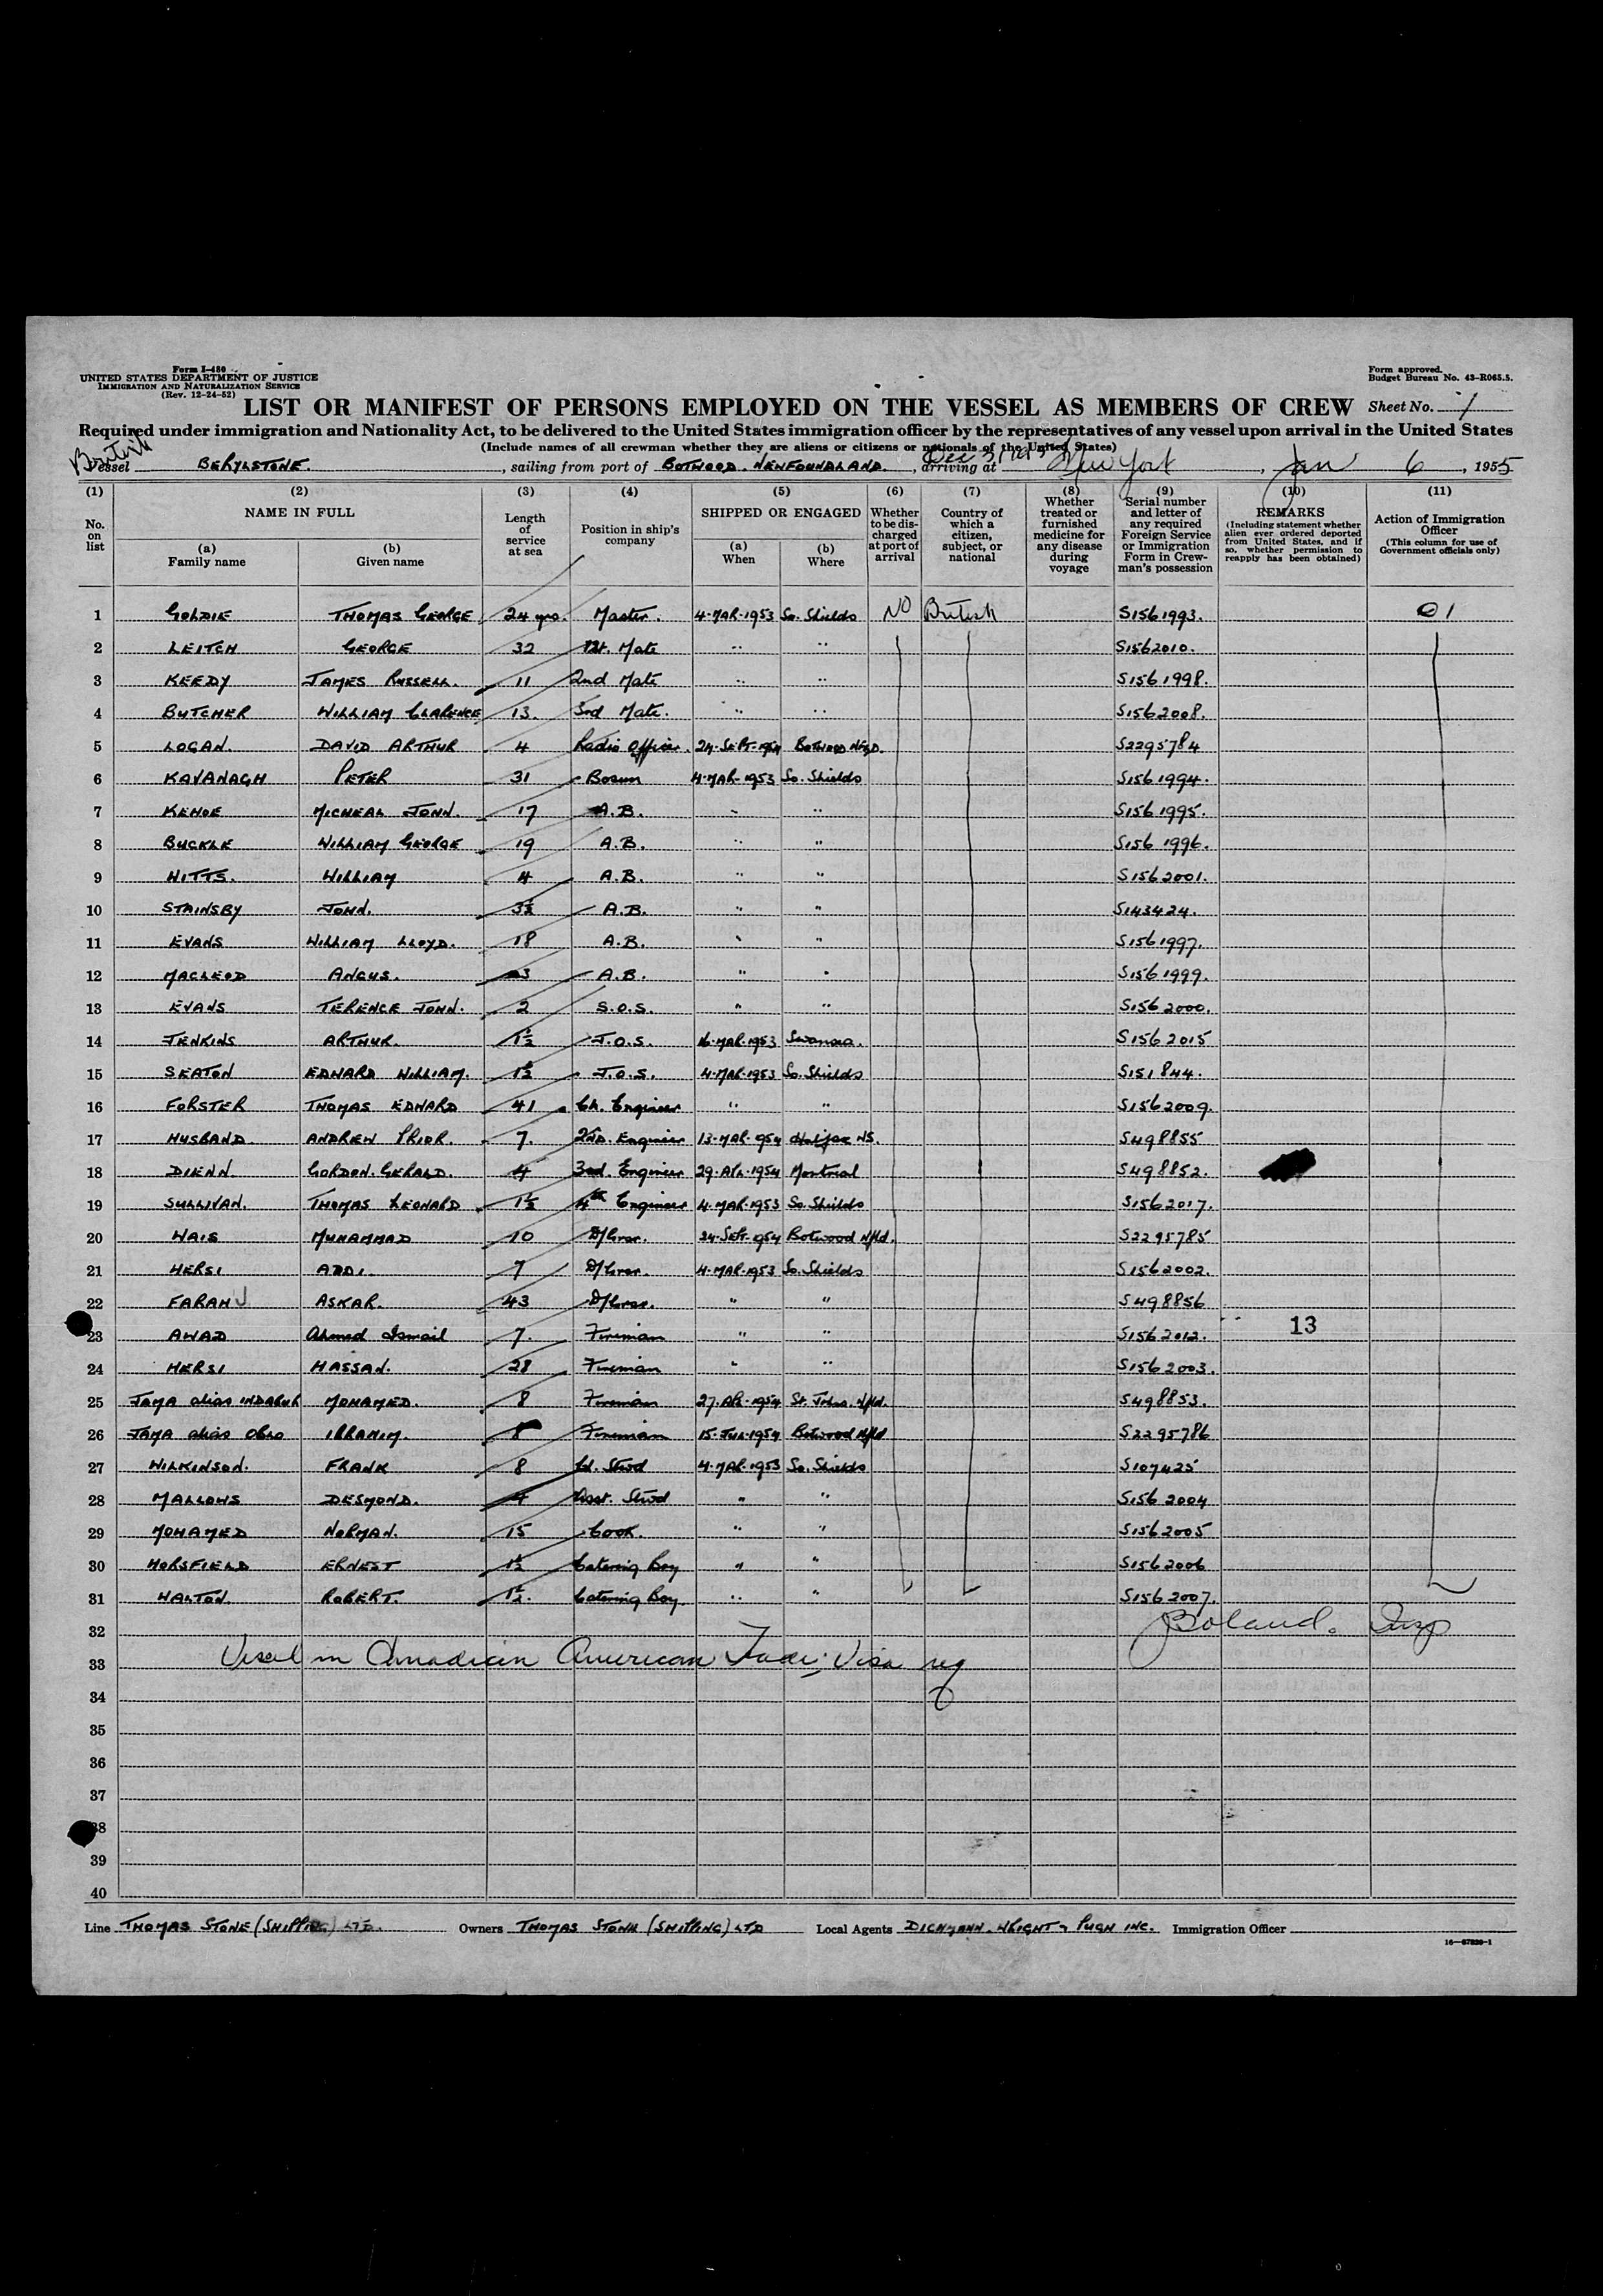 Form I-480
UNITED STATES DEPARTMENT OF JUSTICE
IMMIGRATION AND NATURALIZATION SERVICE
(Rev. 12-24-52)
Form approved.
Budget Bureau No. 43-R065.5.
LIST OR MANIFEST OF PERSONS EMPLOYED ON THE VESSEL AS MEMBERS OF CREW Sheet No. 1
Required under immigration and Nationality Act, to be delivered to the United States immigration officer by the representatives of any vessel upon arrival in the United States
(Include names of all crewman whether they are aliens or citizens or nationals of the United States)
British
Vessel BERYLSTONE. , sailing from port of BOTWOOD. NEWFOUNDLAND. , Dec 31, arriving at New York , Jan 6 , 1955
(1) No. on list (2) NAME IN FULL (a) Family name (b) Given name (3) Length of service at sea (4) Position in ship's company (5) SHIPPED OR ENGAGED (a) When (b) Where (6) Whether to be discharged at port of arrival (7) Country of which a citizen, subject, or national (8) Whether treated or furnished medicine for any disease during voyage (9) Serial number and letter of any required Foreign Service or Immigration Form in Crewman's possession (10) REMARKS (Including statement whether alien ever ordered deported from United States, and if so, whether permission to reapply has been obtained) (11) Action of Immigration Officer (This column for use of Government officials only)
1 GOLDIE THOMAS GEORGE 24 yrs. Master. 4.MAR.1953 So. Shields NO British S1561993. 01
2 LEITCH GEORGE 32 1st. Mate " " S1562010.
3 KEEDY JAMES RUSSELL. 11 2nd Mate " " S1561998.
4 BUTCHER WILLIAM CLARENCE 13. 3rd Mate. " " S1562008.
5 LOGAN. DAVID ARTHUR 4 Radio Officer. 24.SEPT.1954 BOTWOOD NFLD. S2295784
6 KAVANAGH PETER 31 Bosun 4.MAR.1953 So. Shields S1561994.
7 KEHOE MICHEAL JOHN. 17 A.B. " " S1561995.
8 BUCKLE WILLIAM GEORGE 19 A.B. " " S1561996.
9 HITTS. WILLIAM 4 A.B. " " S1562001.
10 STAINSBY JOHN. 3½ A.B. " " S143424.
11 EVANS WILLIAM LLOYD. 18 A.B. " " S1561997.
12 MACLEOD ANGUS. 3 A.B. " " S1561999.
13 EVANS TERENCE JOHN. 2 S.O.S. " " S1562000.
14 JENKINS ARTHUR. 1½ J.O.S. 16.MAR.1953 Swansea. S1562015
15 SEATON EDWARD WILLIAM. 1½ J.O.S. 4.MAR.1953 So. Shields S151844.
16 FORSTER THOMAS EDWARD 41 Ch. Engineer " " S1562009.
17 HUSBAND. ANDREW PRIOR. 7. 2ND. Engineer 13.MAR.1954 Halifax NS. S498855
18 DIENN. GORDON. GERALD. 4 3rd. Engineer 29.APL.1954 Montreal S498852.
19 SULLIVAN. THOMAS LEONARD 1½ 4th Engineer 4.MAR.1953 So. Shields S1562017.
20 WAIS MUHAMMAD 10 24.SEPT.1954 Botwood Nfld. S2295785
21 HERSI ADDI. 7 4.MAR.1953 So. Shields S1562002.
22 FARAH ASKAR. 43 " " S498856
23 AWAD Ahmed Ismail 7. Fireman " " S1562012. 13
24 HERSI HASSAN. 28 Fireman " " S1562003.
25 JAMA alias MOHAMED. 8 Fireman 27.APL.1954 St. Johns. Nfld. S498853.
26 JAMA alias IBRAHIM. 8 Fireman 1954 Botwood Nfld S2295786
27 WILKINSON. FRANK 8 Ch. Stwd 4.MAR.1953 So. Shields S107425
28 MALLOWS DESMOND. 4 Asst. Stwd " " S1562004
29 MOHAMED NORMAN. 15 Cook. " " S1562005
30 HORSFIELD ERNEST 1½ Catering Boy " " S1562006
31 HALTON. ROBERT. 1½. Catering Boy. " " S1562007.
32 Boland. Insp
33 Vessel in Canadian American Trade; Visa
34
35
36
37
38
39
40
Line THOMAS STONE (SHIPPING) LTD. Owners THOMAS STONE (SHIPPING) LTD Local Agents DICHMANN. WRIGHT & PUGH INC. Immigration Officer
16-67820-1